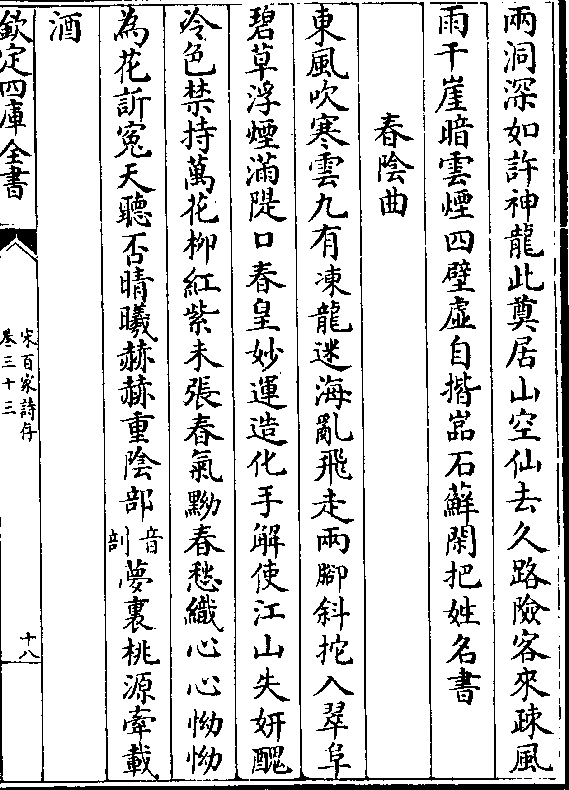 兩洞深如許神龍此奠居山空仙去久路險客來疎風
雨千崖暗雲煙四壁虛自揩嵓石蘚閑把姓名書
春陰曲
東風吹寒雲九有凍龍迷海亂飛走兩腳斜拕入翠阜
碧草浮煙滿隄口春皇妙運造化手解使江山失妍醜
冷色禁持萬花柳紅紫未張春氣黝春愁織心心怮怮
為花訢寃天聽否晴曦赫赫重陰部音剖夢裏桃源牽載
酒
欽定四庫全書
宋百家詩存
卷三十三
十八